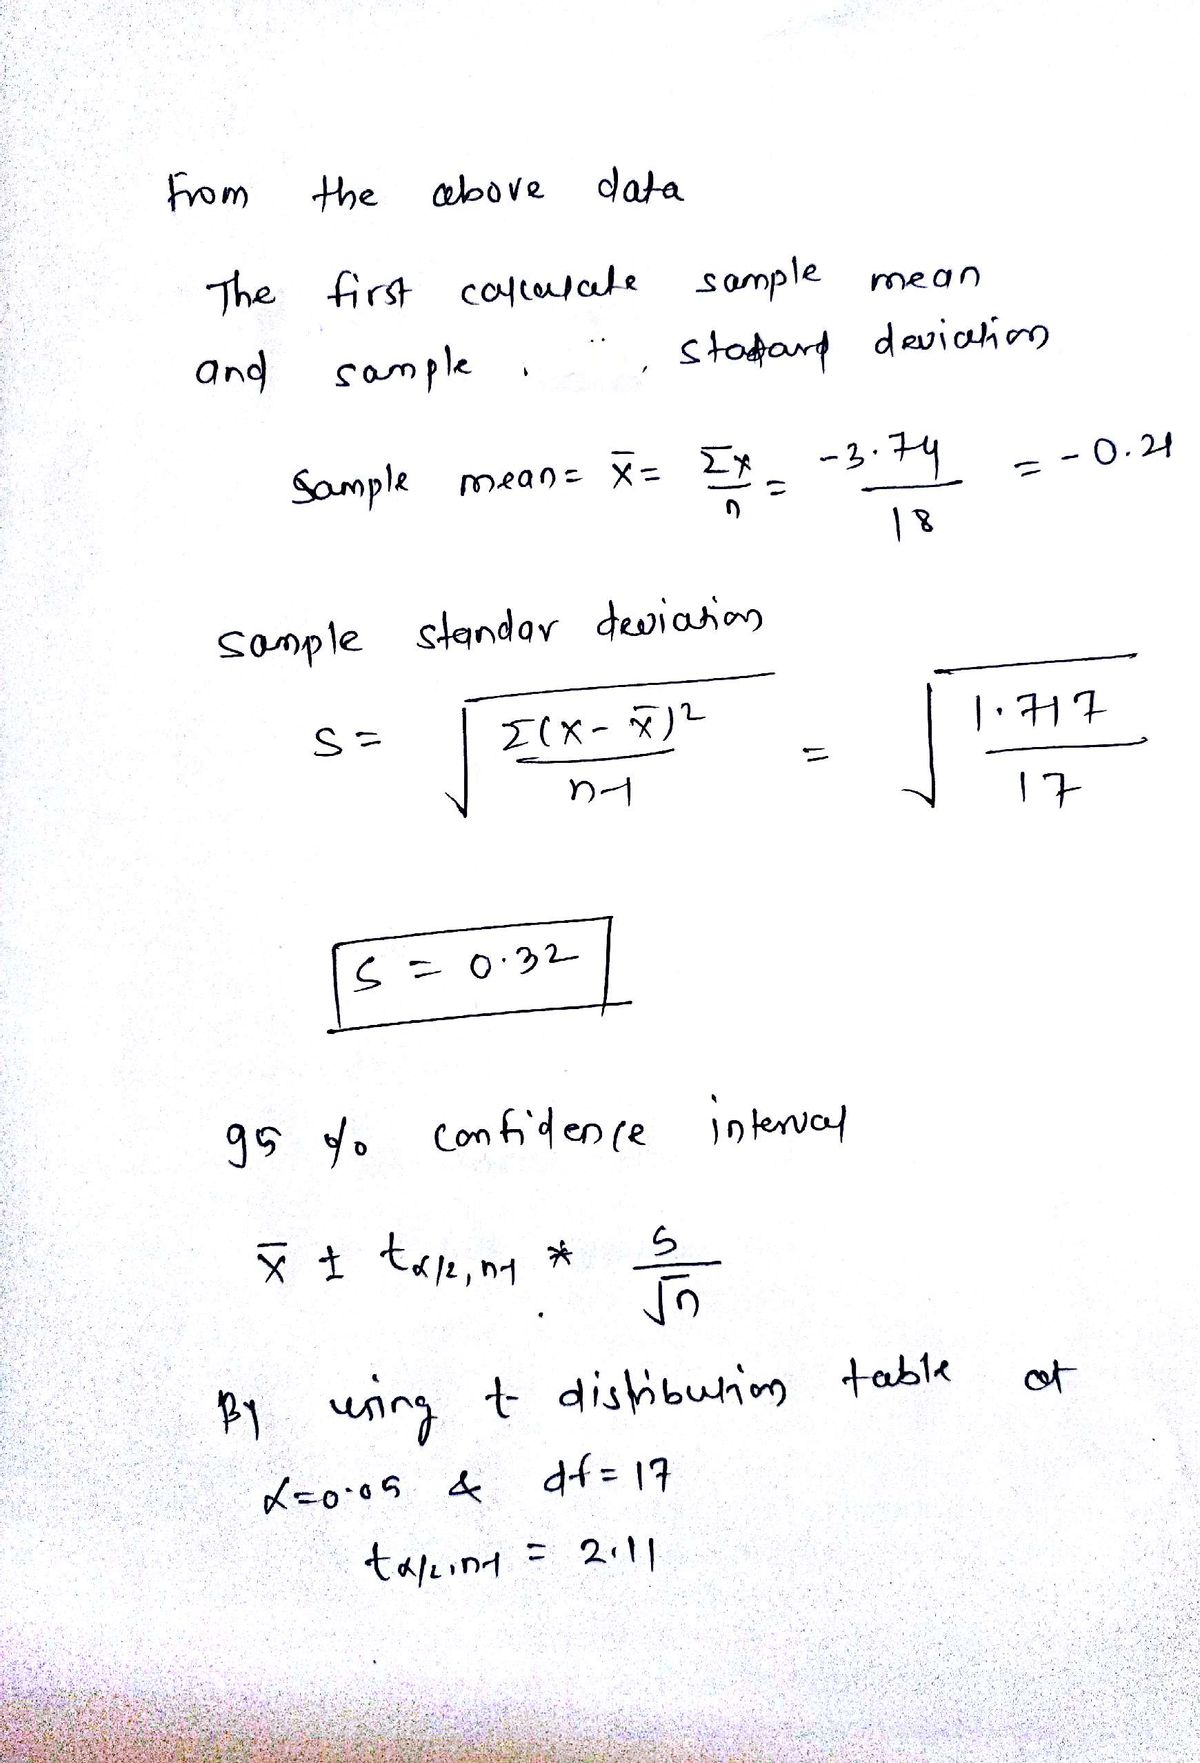 From the above data
The first calculate sample mean
and sample standard deviation
Sample mean = x̄ = Σx/n = -3.74/18 = -0.21
Sample standar deviation
S = √(Σ(x - x̄)²/n-1) = √(1.717/17)
S = 0.32
95 % confidence interval
x̄ ± tα/2, n-1 * S/√n
By using t distribution table at
α=0.05 & df = 17
tα/2, n-1 = 2.11